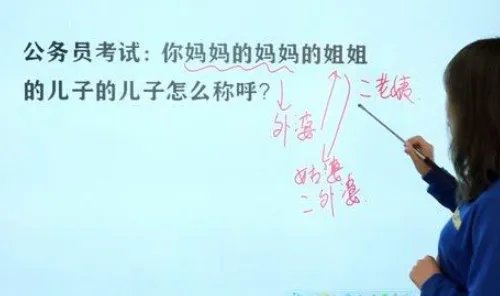 公务员考试:你妈妈的妈妈的姐姐
的儿子的儿子怎么称呼?
二老姨
外婆
姑婆
二外婆